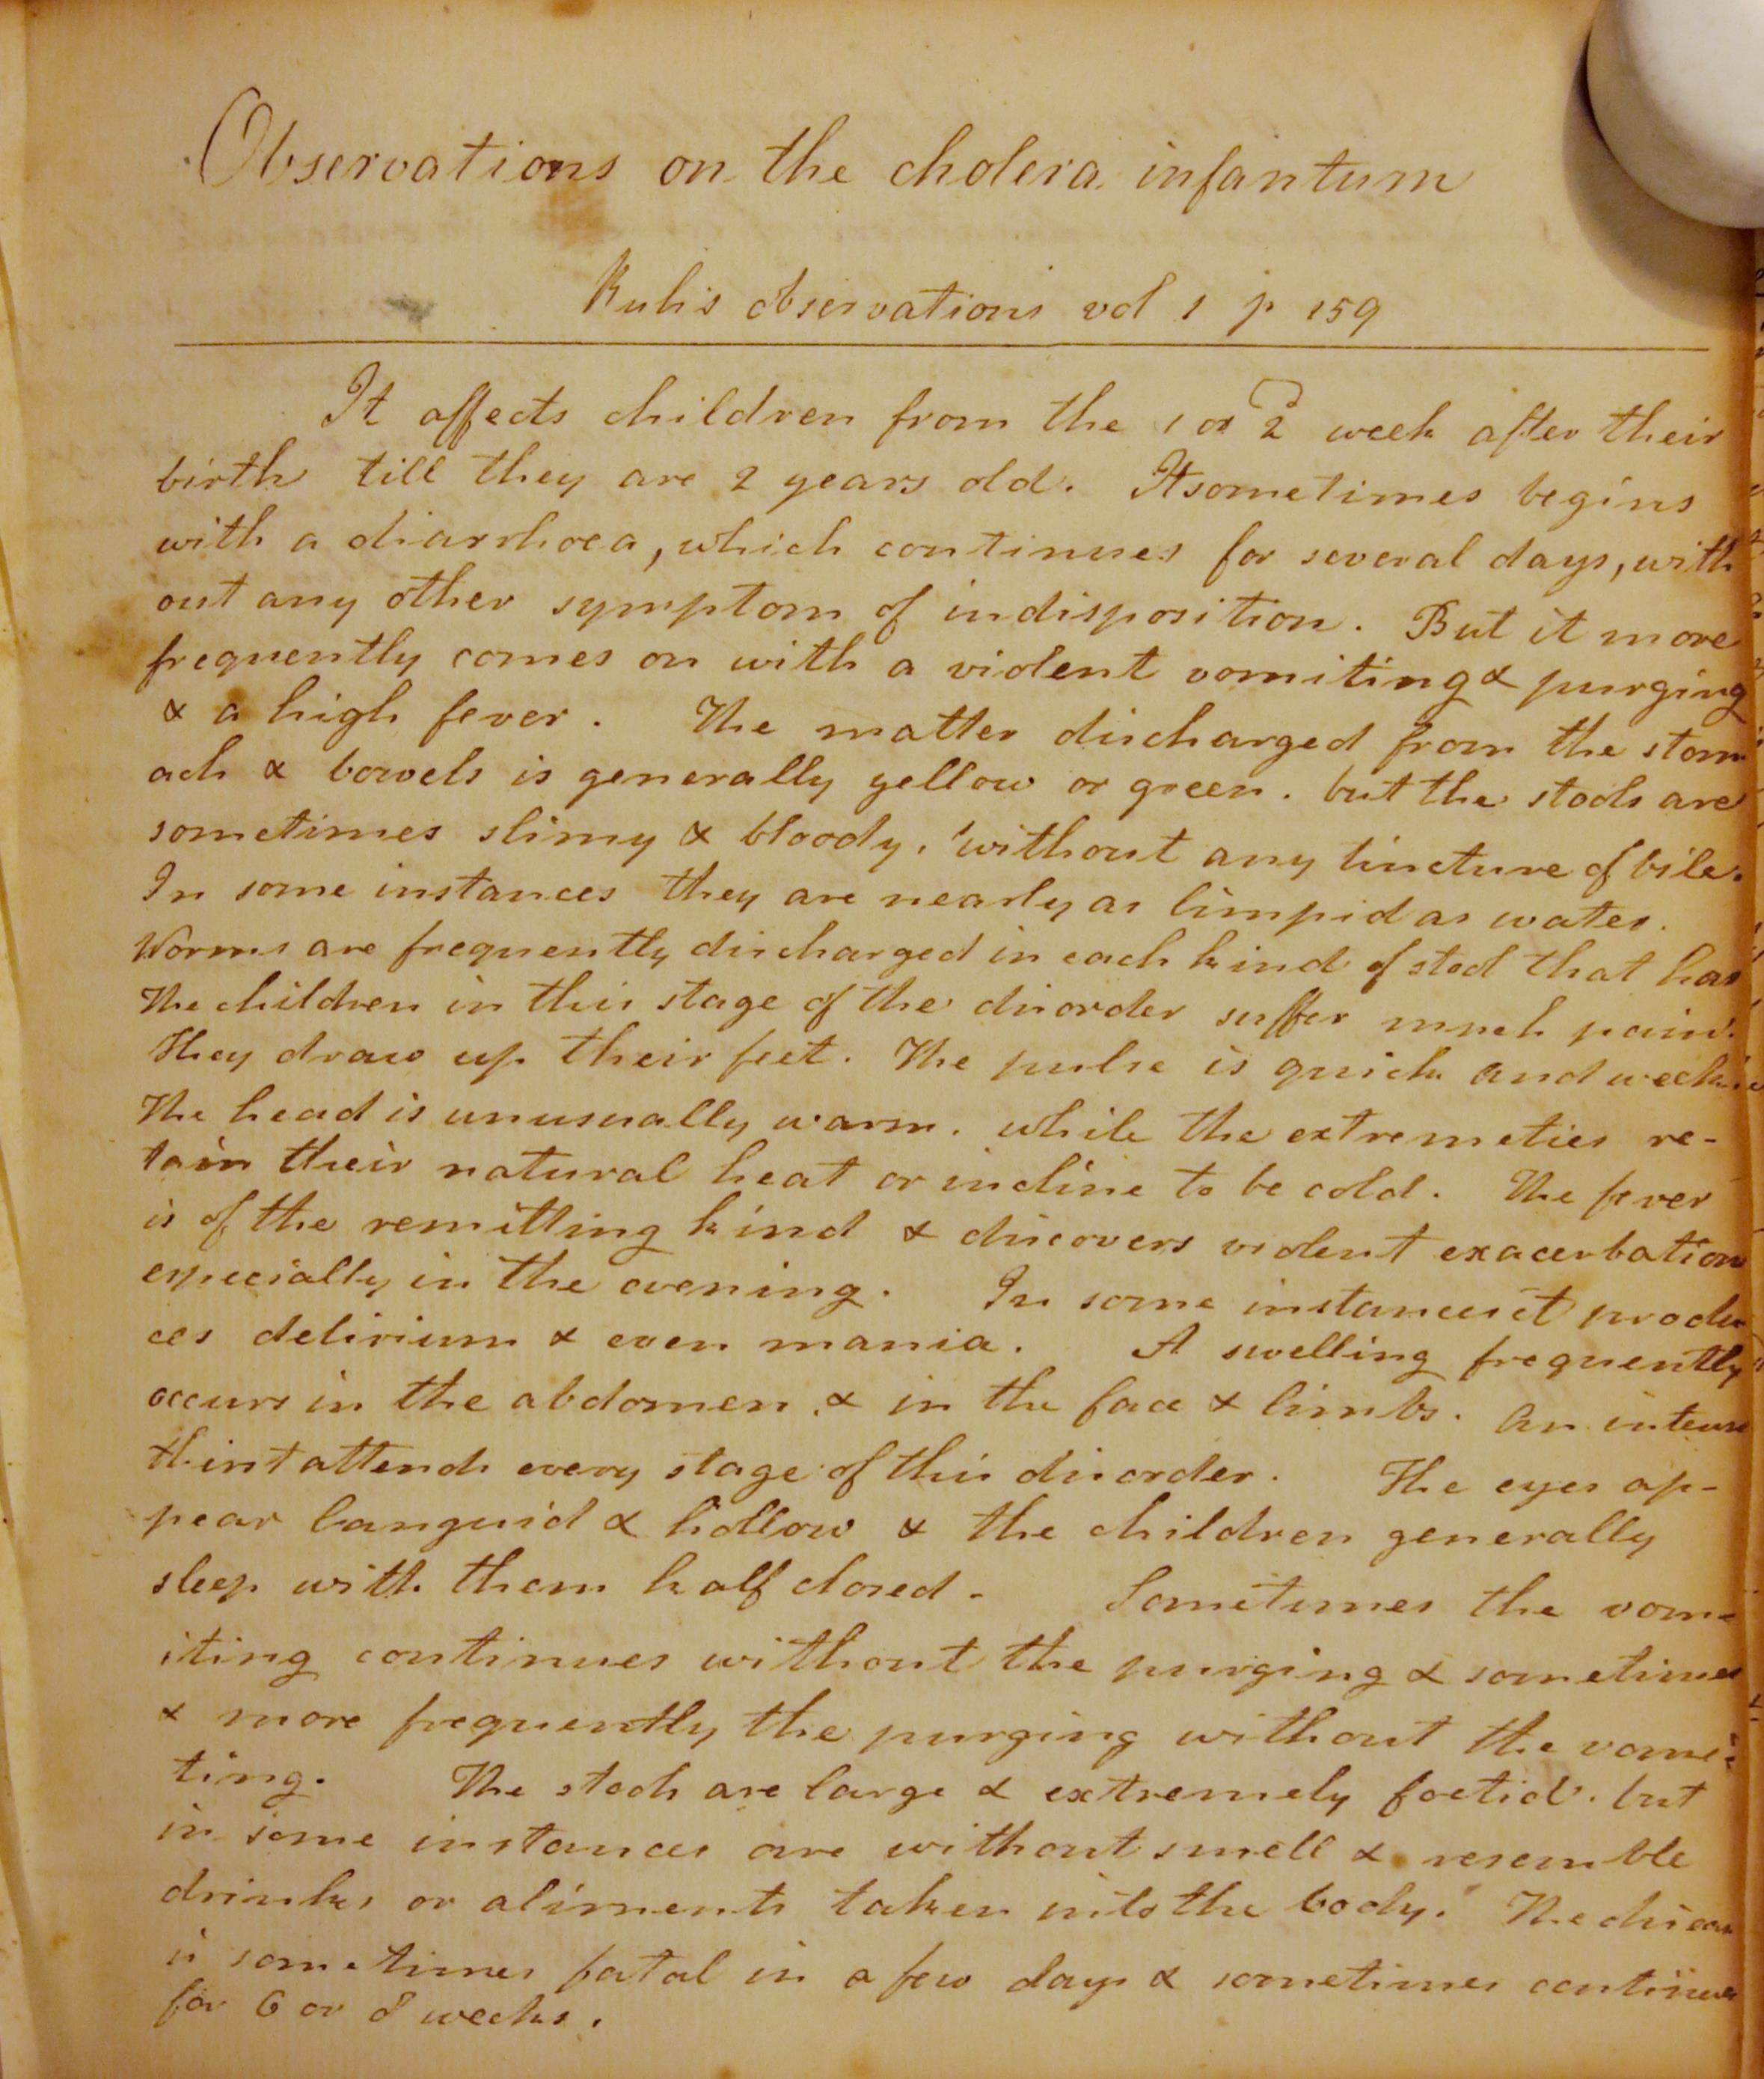 Observations on the cholera infantum
Rush's observations vol 1 p 159
It affects children from the 1 or 2 week after their
birth till they are 2 years old. It sometimes begins
with a diarrhoea, which continues for several days, with
out any other symptom of indisposition. But it more
frequently comes on with a violent vomiting & purging
& a high fever. The matter discharged from the stom
ach & bowels is generally yellow or green. but the stools are
sometimes slimy & bloody, without any tincture of bile.
In some instances they are nearly as limpid as water.
Worms are frequently discharged in each kind of stool that has
The children in this stage of the disorder suffer much pain.
They draw up their feet. The pulse is quick and weak.
The head is unusually warm. while the extremeties re-
tain their natural heat or incline to be cold. The fever
is of the remitting kind & discovers violent exacerbations
especially in the evening. In some instances it produ
ces delirium & even mania. A swelling frequently
occurs in the abdomen & in the face & limbs. An intense
thirst attends every stage of this disorder. The eyes ap-
pear languid & hollow & the children generally
sleep with them half closed - Sometimes the vom-
iting continues without the purging & sometimes
& more frequently the purging without the vomi-
ting. The stools are large & extremely foetid. but
in some instances are without smell & resemble
drinks or aliments taken into the body. The disease
is sometimes fatal in a few days & sometimes continues
for 6 or 8 weeks.